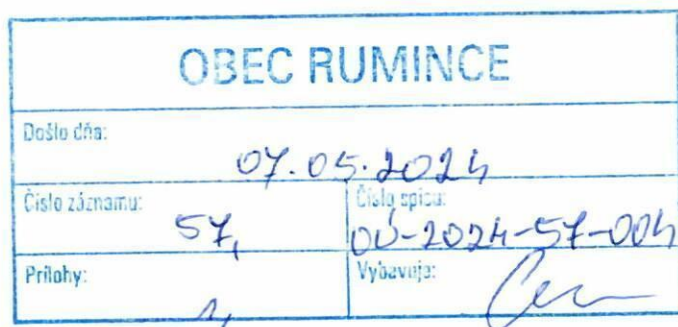 OBEC RUMINCE
Došlo dňa:
07.05.2024
Číslo záznamu:
57,
Číslo spisu:
OÚ-2024-57-004
Prílohy:
1,
Vybavuje: